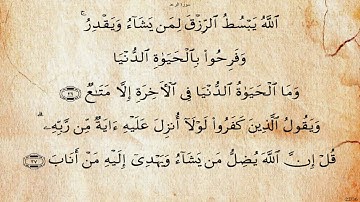 سورة الرعد
ٱللَّهُ يَبْسُطُ ٱلرِّزْقَ لِمَن يَشَآءُ وَيَقْدِرُ ۚ
وَفَرِحُوا۟ بِٱلْحَيَوٰةِ ٱلدُّنْيَا
وَمَا ٱلْحَيَوٰةُ ٱلدُّنْيَا فِى ٱلْـَٔاخِرَةِ إِلَّا مَتَـٰعٌ ٢٦
وَيَقُولُ ٱلَّذِينَ كَفَرُوا۟ لَوْلَآ أُنزِلَ عَلَيْهِ ءَايَةٌ مِّن رَّبِّهِۦ ۗ
قُلْ إِنَّ ٱللَّهَ يُضِلُّ مَن يَشَآءُ وَيَهْدِىٓ إِلَيْهِ مَنْ أَنَابَ ٢٧